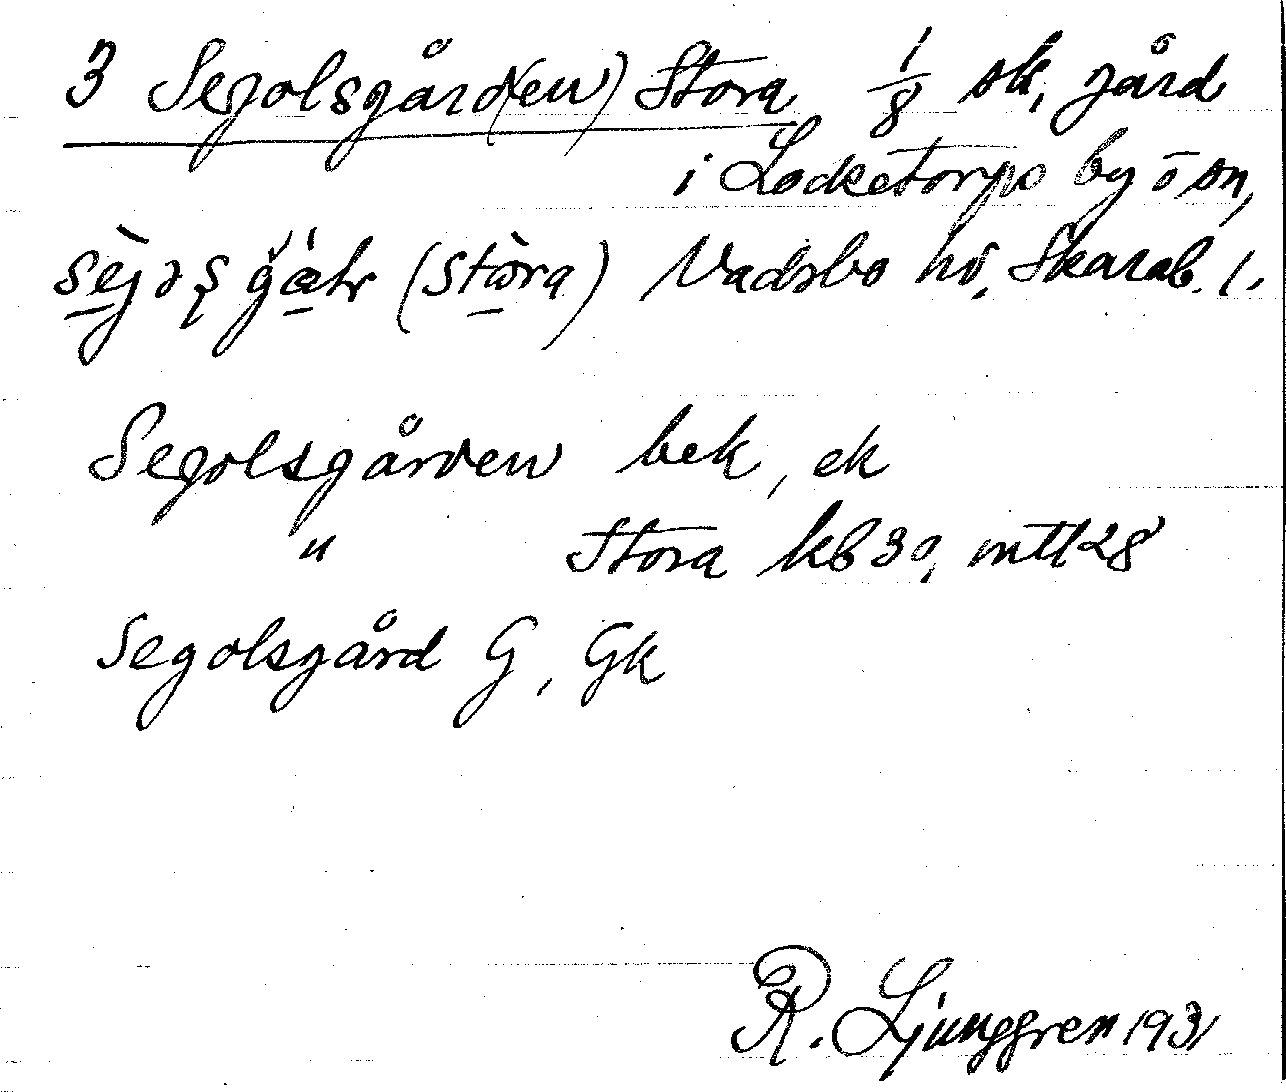 3 Segolsgård(en) Stora 1/8 sk. gård
i Locketorps by o sn,
(stòra) Vadsbo hd. Skarab. l.
Segolsgården bek, ek
" Stora kb 30, mtl 28
Segolsgård G, Gk
R. Ljunggren 1931